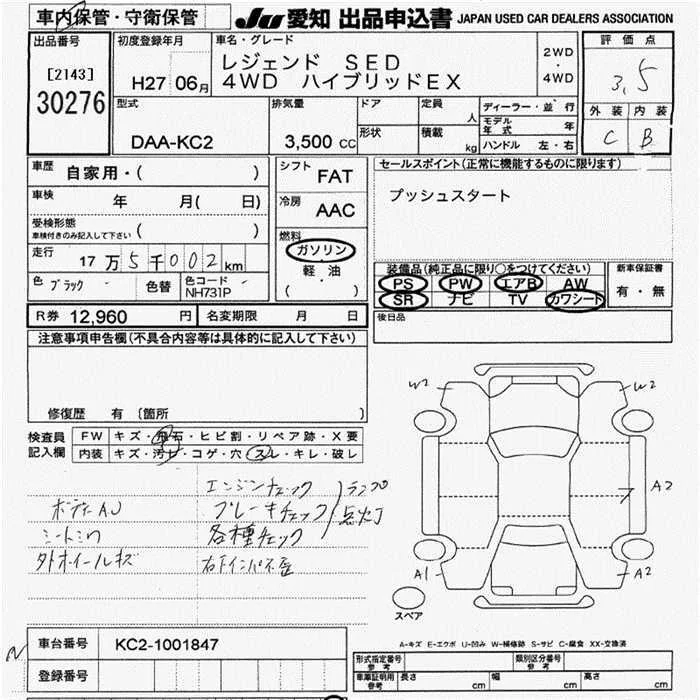 車内保管・守衛保管
JU 愛知 出品申込書 JAPAN USED CAR DEALERS ASSOCIATION
出品番号
[2143]
30276
初度登録年月
H27 06月
車名・グレード
レジェンド SED
4WD ハイブリッドEX
2WD
・
4WD
評価点
3.5
外装 内装
C B
型式
DAA-KC2
排気量
3,500 cc
ドア
形状
定員 人
積載 kg
ディーラー・並行
モデル年式 年
ハンドル 左・右
車歴 自家用・( )
車検 年 月( 日)
受検形態
車検付きのみ記入して下さい ( )
走行 17万5千002km
色 ブラック 色替 色コード NH731P
シフト FAT
冷房 AAC
燃料
ガソリン
軽・油
( )
セールスポイント(正常に機能するものに限ります)
プッシュスタート
装備品(純正品に限り○をつけてください)
PS PW エアB AW
SR ナビ TV カワシート
新車保証書
有・無
後日品
R券 12,960 円 名変期限 月 日
注意事項申告欄(不具合内容等は具体的に記入して下さい)
修復歴 有 〔箇所 〕
検査員記入欄
FW キズ・飛石・ヒビ割・リペア跡・X要
内装 キズ・汚レ・コゲ・穴・スレ・キレ・破レ
エンジンチェック
ブレーキチェック
各種チェック
ランプ
点灯
ボデーAU
シートシワ
外ホイールキズ
W2 W2
A2
A1 A2
スペア
A-キズ E-エクボ U-凹み W-補修跡 S-サビ C-腐食 XX-交換済
車台番号 KC2-1001847
登録番号
形式指定番号 参考 類別区分番号 参考
車庫証明用 参考 長さ cm 幅 cm 高さ cm